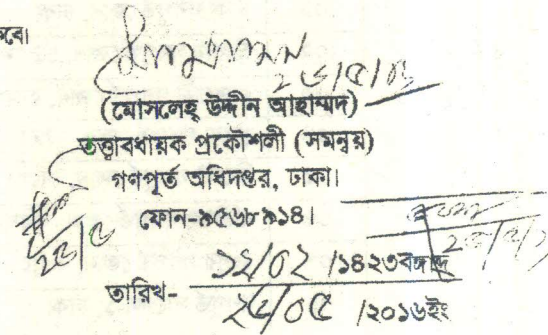 কবে।
২৬/৫/১৬
(মোসলেহ্ উদ্দীন আহাম্মদ)
তত্ত্বাবধায়ক প্রকৌশলী (সমন্বয়)
গণপূর্ত অধিদপ্তর, ঢাকা।
ফোন-৯৫৬৮৯১৪।
২৫/৫
১২/০২ /১৪২৩বঙ্গাব্দ
তারিখ-
২৫/০৫ /২০১৬ইং